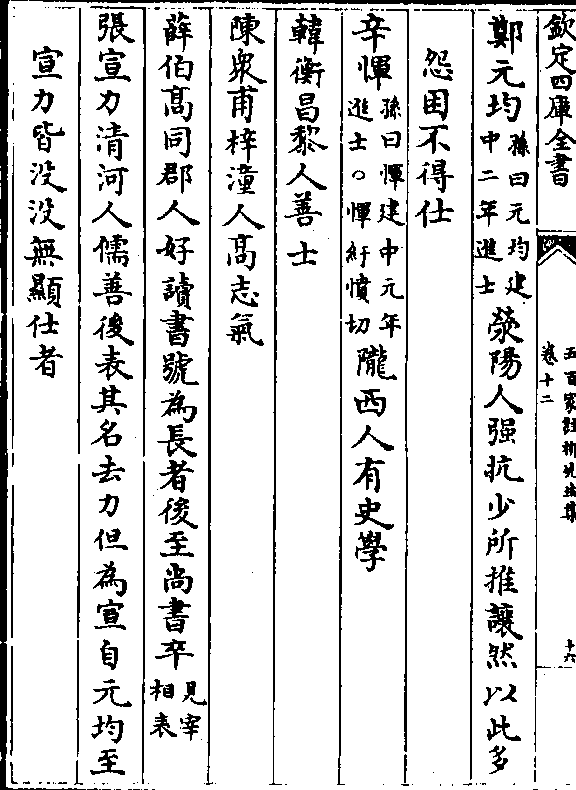 欽定四庫全書
五百家註柳先生集
卷十二
十六
鄭元均孫曰元均建中二年進士滎陽人强抗少所推讓然以此多
怨困不得仕
辛惲孫曰惲建中元年進士○惲紆憤切隴西人有史學
韓衡昌黎人善士
陳衆甫梓潼人高志氣
薛伯高同郡人好讀書號為長者後至尚書卒見宰相表
張宣力清河人儒善後表其名去力但為宣自元均至
宣力皆没没無顯仕者